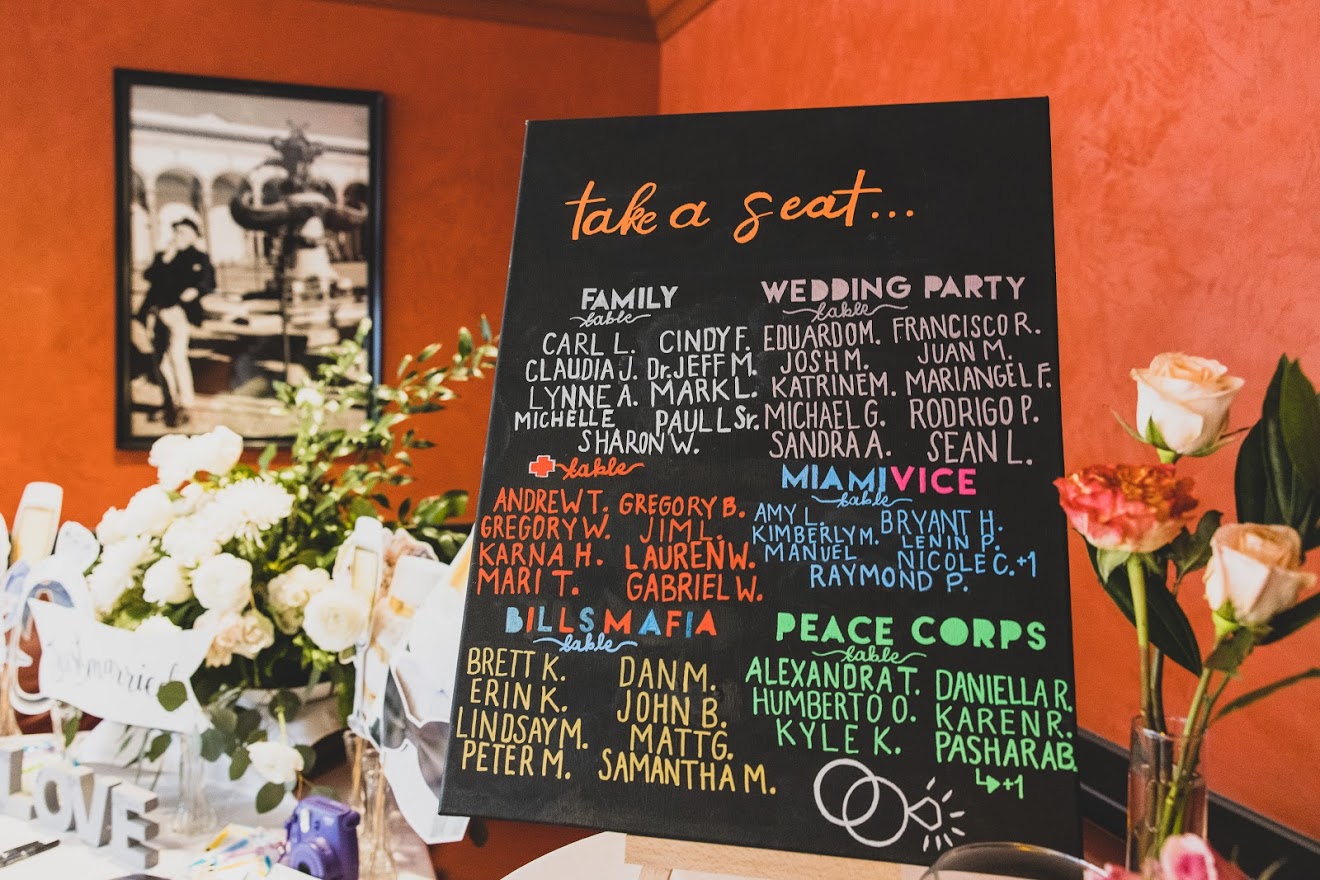 take a seat...
FAMILY
table
CARL L. CINDY F.
CLAUDIA J. Dr. JEFF M.
LYNNE A. MARK L.
MICHELLE PAUL L Sr.
SHARON W.
WEDDING PARTY
table
EDUARDO M. FRANCISCO R.
JOSH M. JUAN M.
KATRINE M. MARIANGEL F.
MICHAEL G. RODRIGO P.
SANDRA A. SEAN L.
table
ANDREW T. GREGORY B.
GREGORY W. JIM L.
KARNA H. LAUREN W.
MARI T. GABRIEL W.
MIAMI VICE
table
AMY L. BRYANT H.
KIMBERLY M. LENIN P.
MANUEL NICOLE C. +1
RAYMOND P.
BILLS MAFIA
table
BRETT K. DAN M.
ERIN K. JOHN B.
LINDSAY M. MATT G.
PETER M. SAMANTHA M.
PEACE CORPS
table
ALEXANDRA T. DANIELLA R.
HUMBERTO O. KAREN R.
KYLE K. PASHARA B.
+1
just married
LOVE